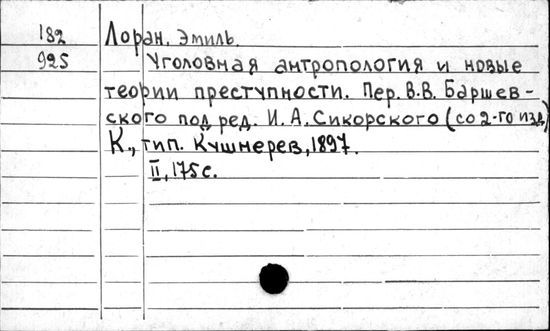 182 Лоран, Эмиль.
925 Уголовная антропология и новые
теории преступности. Пер. В.В. Баршев-
ского под ред. И. А. Сикорского (со 2-го изд)
К., тип. Кушнерев, 1897.
II, 175 с.